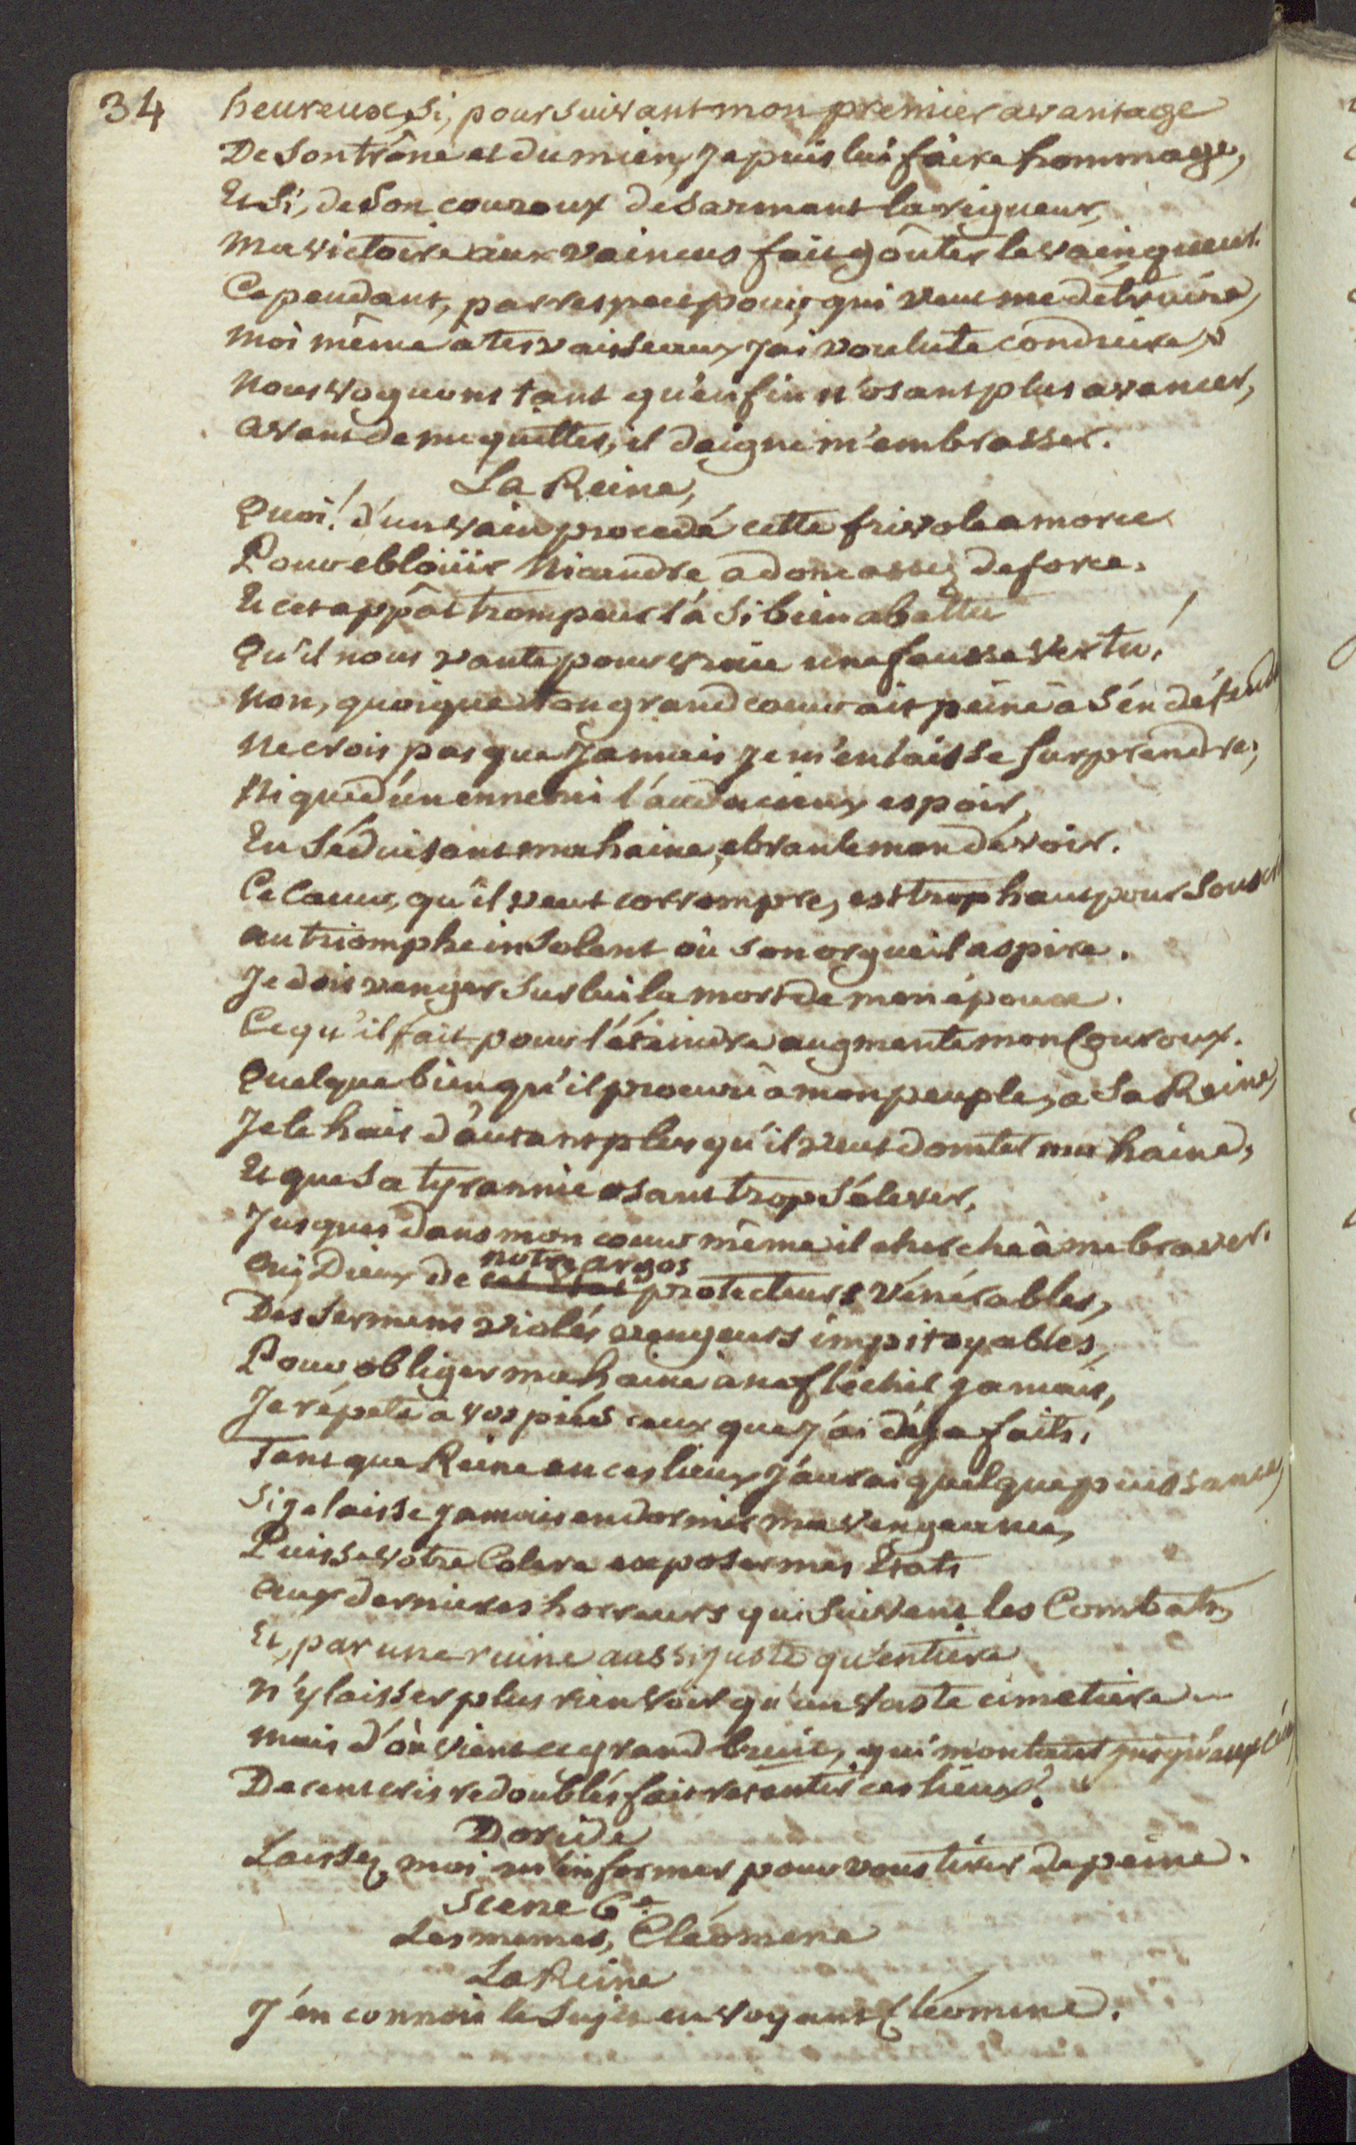 34
heureux, si, poursuivant mon premier avantage
De son trône et du mien, Je puis lui faire hommage,
Et si, de son couroux desarmant la rigueur,
Ma victoire aux vaincus fait goûter le vainqueur.
Cependant, par respect pour qui veut me détruire,
Moi même à tes vaisseaux J'ai voulu te conduire,
Nous voguons tant qu'enfin n'osant plus avancer,
avant de me quitter, il daigne m'embrasser.
La Reine,
Quoi! d'un vain procedé cette frivole amorce
Pour ebloüir Nicandre a donc assez de force.
Et cet appât trompeur l'a si bien abattu
Qu'il nous vante pour vraie une fausse vertu!
Non, quoique ton grand coeur ait peine à s'en défendre
Ne crois pas que Jamais Je m'en laisse surprendre,
Ni que d'un ennemi l'audacieux espoir,
En séduisant ma haine, ebranle mon dévoir.
Ce Coeur, qu'il veut corrompre, est trop haut pour
au triomphe insolent où son orgueil aspire.
Je dois venger sur lui la mort de mon époux.
Ce qu'il fait pour l'éteindre augmente mon Couroux.
Quelque bien qu'il procure à mon peuple, a Sa Reine,
Je le hais d'autant plus qu'il veut domter ma haine,
Et que sa tyrannie osant trop s'élever,
Jusques dans mon coeur même il cherche à me braver.
Oui, Dieux de notre argos protecteurs vénérables,
Des sermens violés vengeurs impitoyables,
Pour obliger ma haine à ne fléchir jamais,
Je répete à vos piés ceux que j'ai déja faits,
Tant que Reine en ces lieux J'aurai quelque puissance,
Si je laisse jamais endormir ma vengeance,
Puisse votre Colere exposer mes Etats
aux dernieres horreurs qui suivent les Combats,
Et, par une ruine aussi juste qu'entiere
N'y laisser plus rien voir qu'un vaste cimetiere
mais d'où vient ce grand bruit, qui montant jusqu'aux
De cent cris redoublés fait retentir ces lieux?
Doride
Laissez moi m'informer pour vous tirer de peine.
Scene 6e
Les memes, Cléomene
La Reine
J'en connois le sujet en voyant Cléomene.